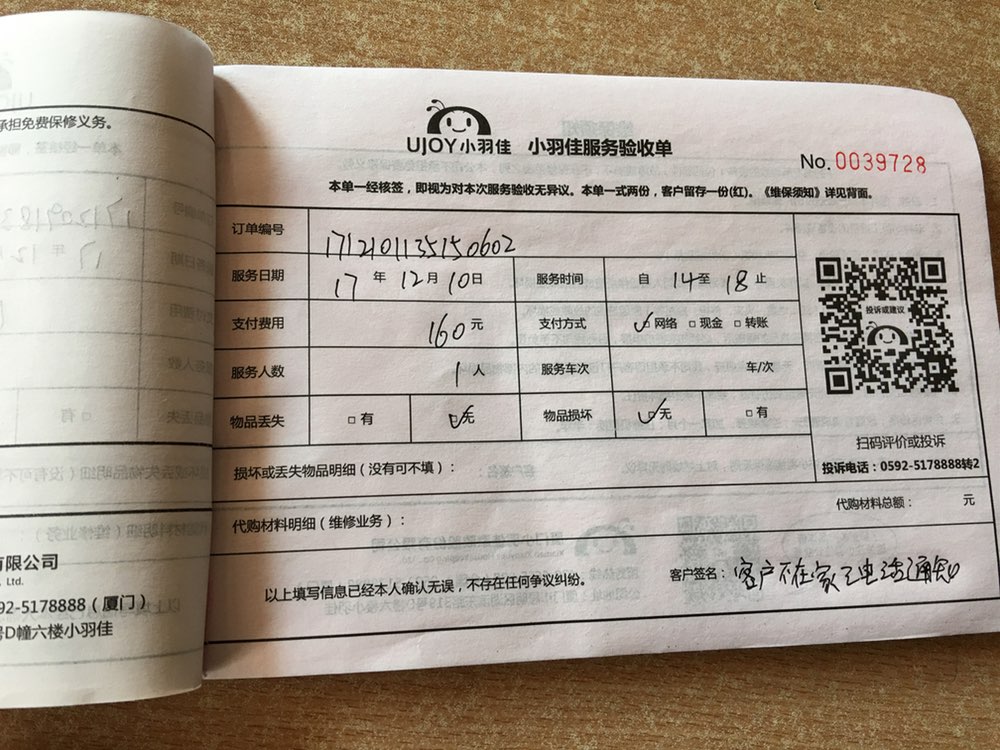 承担免费保修义务。
有限公司
, Ltd.
92-5178888（厦门）
号D幢六楼小羽佳
UJOY小羽佳 小羽佳服务验收单
No. 0039728
本单一经核签，即视为对本次服务验收无异议。本单一式两份，客户留存一份(红)。《维保须知》详见背面。
订单编号 1712101135150602
服务日期 17 年 12 月 10 日 服务时间 自 14 至 18 止
支付费用 160 元 支付方式 ☑网络 □现金 □转账
投诉或建议
服务人数 1 人 服务车次 车/次
物品丢失 □有 ☑无 物品损坏 ☑无 □有
扫码评价或投诉
损坏或丢失物品明细（没有可不填）：
投诉电话：0592-5178888转2
代购材料明细（维修业务）： 代购材料总额： 元
以上填写信息已经本人确认无误，不存在任何争议纠纷。 客户签名：客户不在家已电话通知